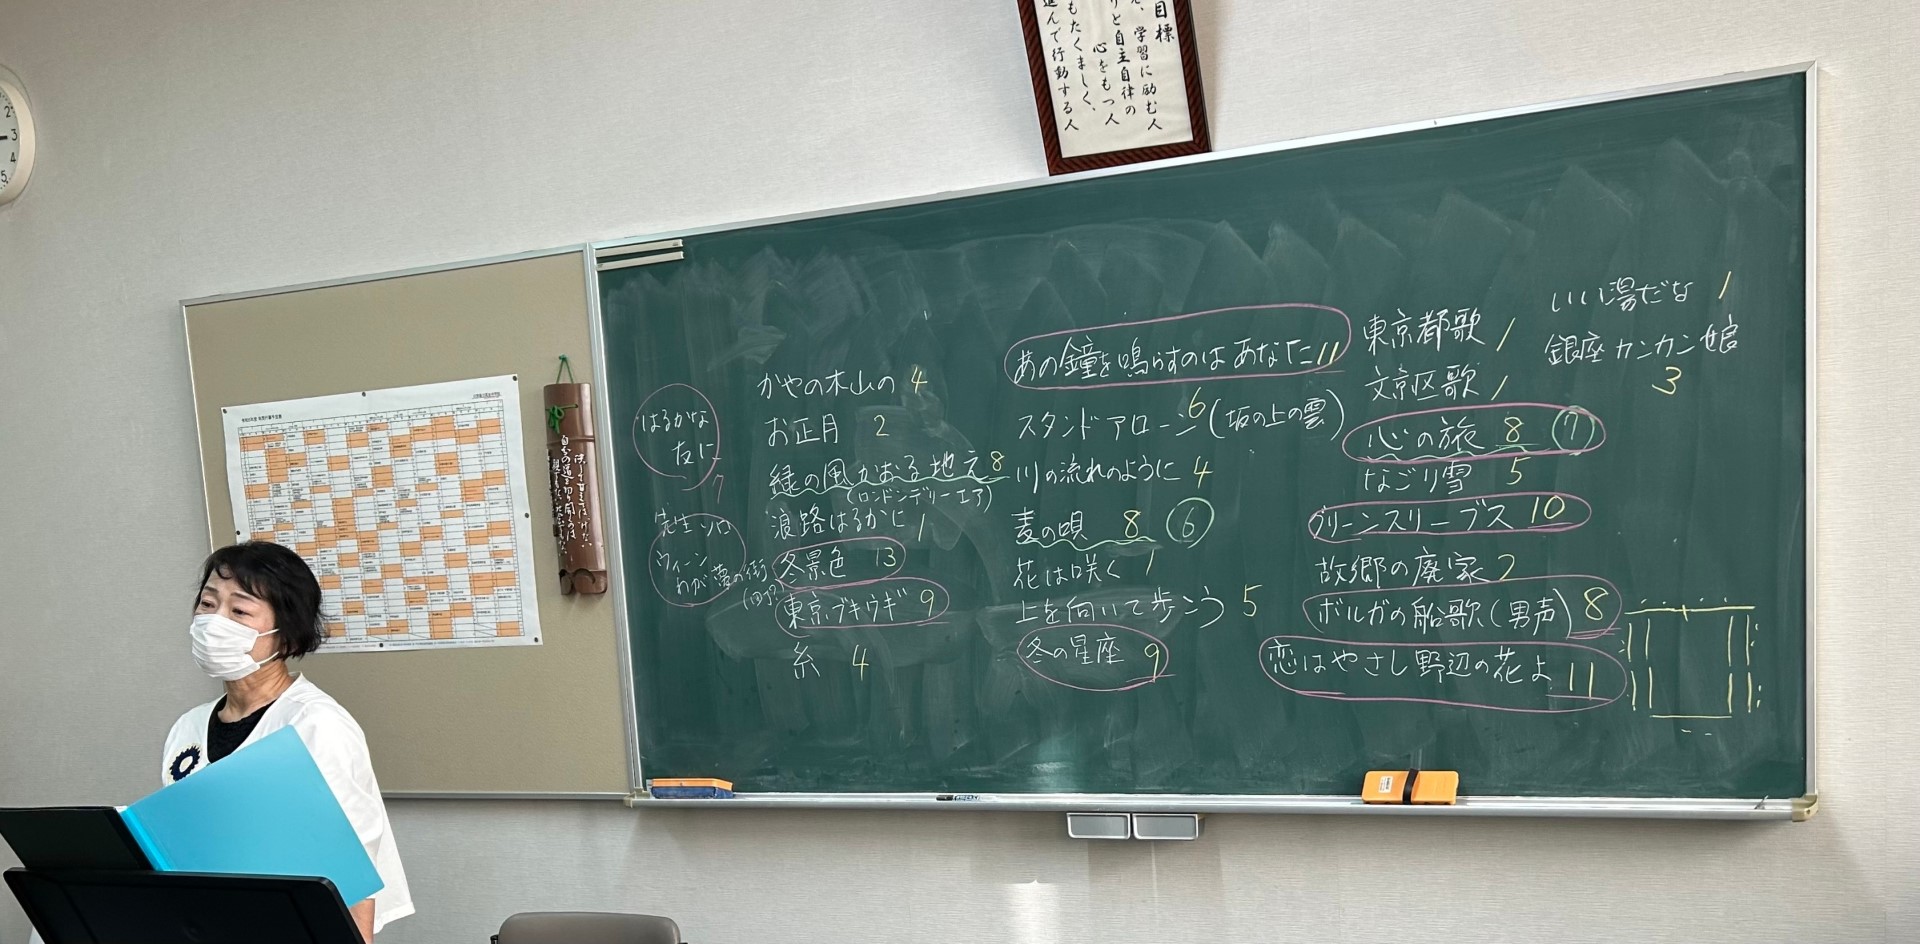 目標
学習に励む人
と自主自律の
心をもつ人
もたくましく、
進んで行動する人
2
3
4
5
はるかな
友に
7
先生ソロ
ウィーン
わが夢の街
かやの木山の 4
お正月 2
緑の風かおる地え 8
(ロンドンデリーエア)
浪路はるかに 1
冬景色 13
東京ブキウギ 9
糸 4
あの鐘を鳴らすのはあなた 11
スタンドアローン 6 (坂の上の雲)
川の流れのように 4
麦の唄 8 6
花は咲く 1
上を向いて歩こう 5
冬の星座 9
東京都歌 1
文京区歌 1
心の旅 8 7
なごり雪 5
グリーンスリーブス 10
故郷の廃家 2
ボルガの船歌(男声) 8
恋はやさし野辺の花よ 11
いい湯だな 1
銀座カンカン娘
3